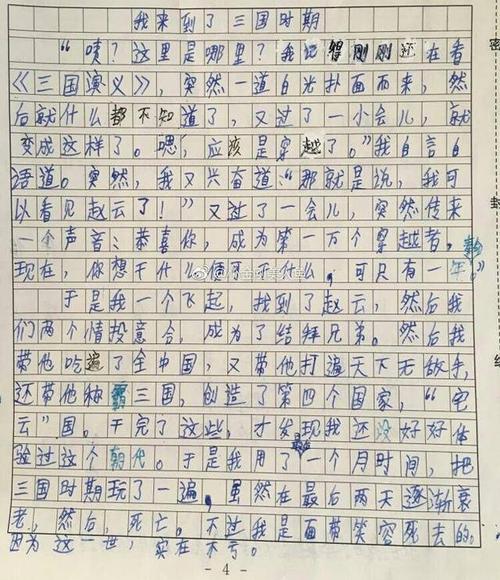 我来到了三国时期
“咦？这里是哪里？我记得刚刚还在看
《三国演义》，突然一道白光扑面而来，然
后就什么都不知道了，又过了一小会儿，就
变成这样了。嗯，应该是穿越了。”我自言自
语道。突然，我又兴奋道：“那就是说，我可
以看见赵云了！”又过了一会儿，突然传来
一个声音：恭喜你，成为第一万个穿越者，
现在，你想干什么便可干什么，可只有一年。”
于是我一个飞起，找到了赵云，然后我
们两个情投意合，成为了结拜兄弟。然后我
带他吃遍了全中国，又带他打遍天下无敌手，
还带他称霸三国，创造了第四个国家，“宅
云”国。干完了这些，才发现我还没好好体
验过这个朝代。于是我用了一个月时间，把
三国时期玩了一遍，虽然在最后两天逐渐衰
老，然后，死亡。不过我是面带笑容死去的。
因为这一世，实在不亏。
- 4 -
密
封